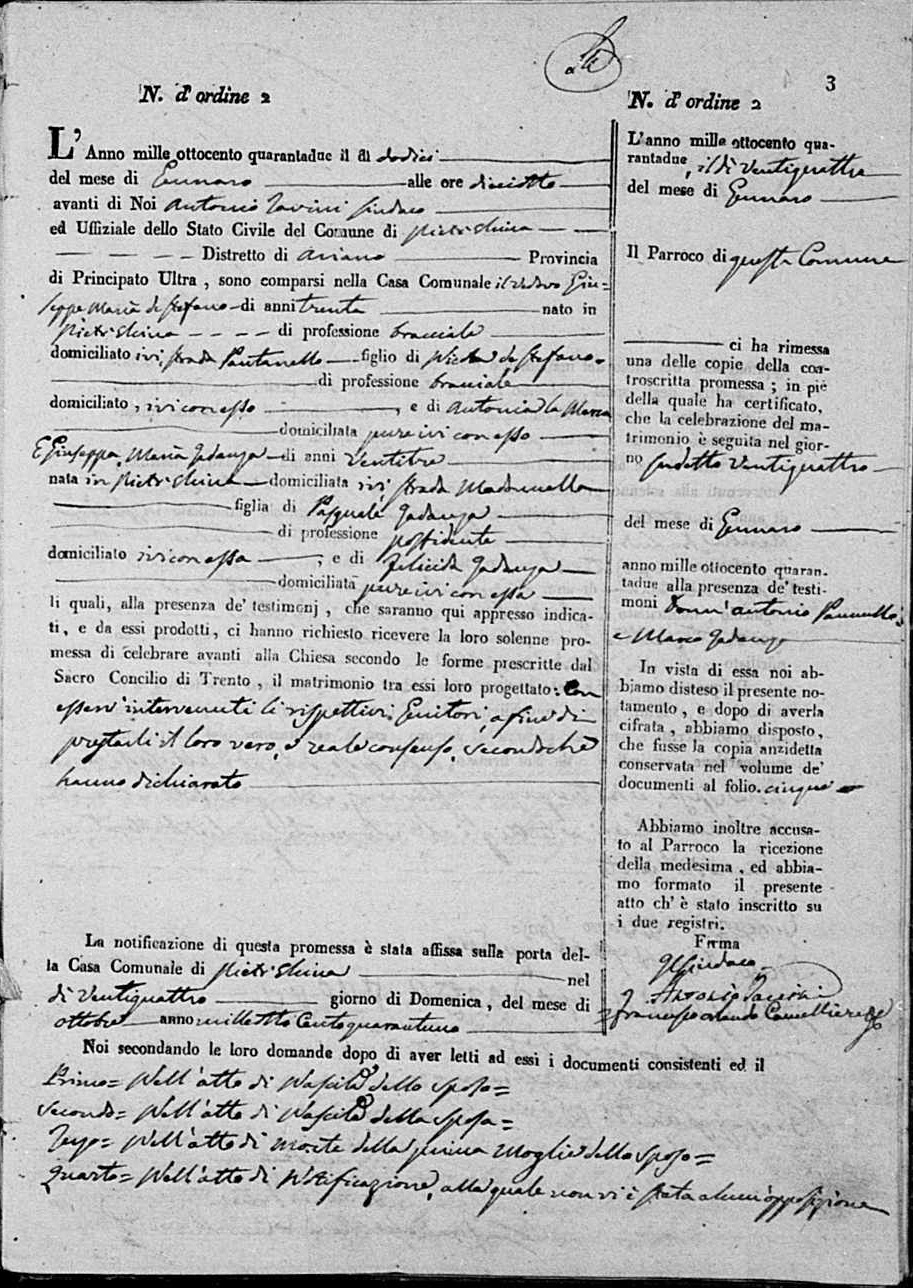 3
N. d'ordine 2
L'Anno mille ottocento quarantadue il dì dodici
del mese di Gennaro alle ore diciotto
avanti di Noi Antonio Iavini Sindaco
ed Uffiziale dello Stato Civile del Comune di Pietrelcina
Distretto di Ariano Provincia
di Principato Ultra, sono comparsi nella Casa Comunale il vedovo Giu=
seppe Maria de Stefano di anni trenta nato in
Pietrelcina di professione bracciale
domiciliato ivi, strada Pantanello figlio di Nicola de Stefano
di professione bracciale
domiciliato, ivi con esso, e di Antonia la Marca
domiciliata pure ivi con esso
E Giuseppa Maria Gadanza di anni ventitre
nata in Pietrelcina domiciliata ivi, strada Madonnella
figlia di Pasquale Gadanza
di professione possidente
domiciliato ivi con essa; e di Felicita Gadanza
domiciliata pure ivi con essa
li quali, alla presenza de' testimonj, che saranno qui appresso indica-
ti, e da essi prodotti, ci hanno richiesto ricevere la loro solenne pro-
messa di celebrare avanti alla Chiesa secondo le forme prescritte dal
Sacro Concilio di Trento, il matrimonio tra essi loro progettato: Con
esservi intervenuti li rispettivi Genitori, a fine di
prestarli il loro vero, e reale consenso, secondochè
hanno dichiarato
La notificazione di questa promessa è stata affissa sulla porta del-
la Casa Comunale di Pietrelcina nel
dì Ventiquattro giorno di Domenica, del mese di
ottobre anno mille otto Cento quarantuno
Noi secondando le loro domande dopo di aver letti ad essi i documenti consistenti ed il
Primo= Nell'atto di Nascita dello sposo=
Secondo= Nell'atto di Nascita della sposa=
Terzo= Nell'atto di morte della prima Moglie dello sposo=
Quarto= Nell'atto di Notificazione, alla quale non vi è stata alcun'opposizione
N. d'ordine 2
L'anno mille ottocento qua-
rantadue, il dì Ventiquattro
del mese di Gennaro
Il Parroco di questa Comune
ci ha rimessa
una delle copie della con-
troscritta promessa; in piè
della quale ha certificato,
che la celebrazione del ma-
trimonio è seguita nel gior-
no sudetto Ventiquattro
del mese di Gennaro
anno mille ottocento quaran-
tadue alla presenza de' testi-
moni Donn'antonio
e Marco Gadanza
In vista di essa noi ab-
biamo disteso il presente no-
tamento, e dopo di averla
cifrata, abbiamo disposto,
che fusse la copia anzidetta
conservata nel volume de'
documenti al folio. cinque
Abbiamo inoltre accusa-
to al Parroco la ricezione
della medesima, ed abbia-
mo formato il presente
atto ch'è stato inscritto su
i due registri.
Firma
Il Sindaco
Antonio
Francesco Orlando Cancelliere